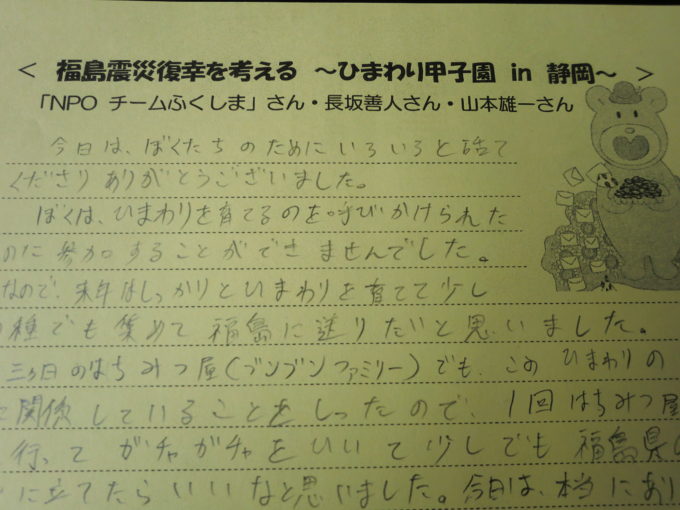 < 福島震災復幸を考える ～ひまわり甲子園 in 静岡～ >
「NPO チームふくしま」さん・長坂善人さん・山本雄一さん
今日は、ぼくたちのためにいろいろと話て
くださりありがとうございました。
ぼくは、ひまわりを育てるのを呼びかけられた
のに参加することができませんでした。
なので、来年はしっかりとひまわりを育てて少し
の種でも集めて福島に送りたいと思いました。
三ヶ日のはちみつ屋(ブンブンファミリー)でも、このひまわりの
に関係していることをしったので、1回はちみつ屋
行ってガチャガチャをひいて少しでも福島県
に立てたらいいなと思いました。今日は、本当にあり